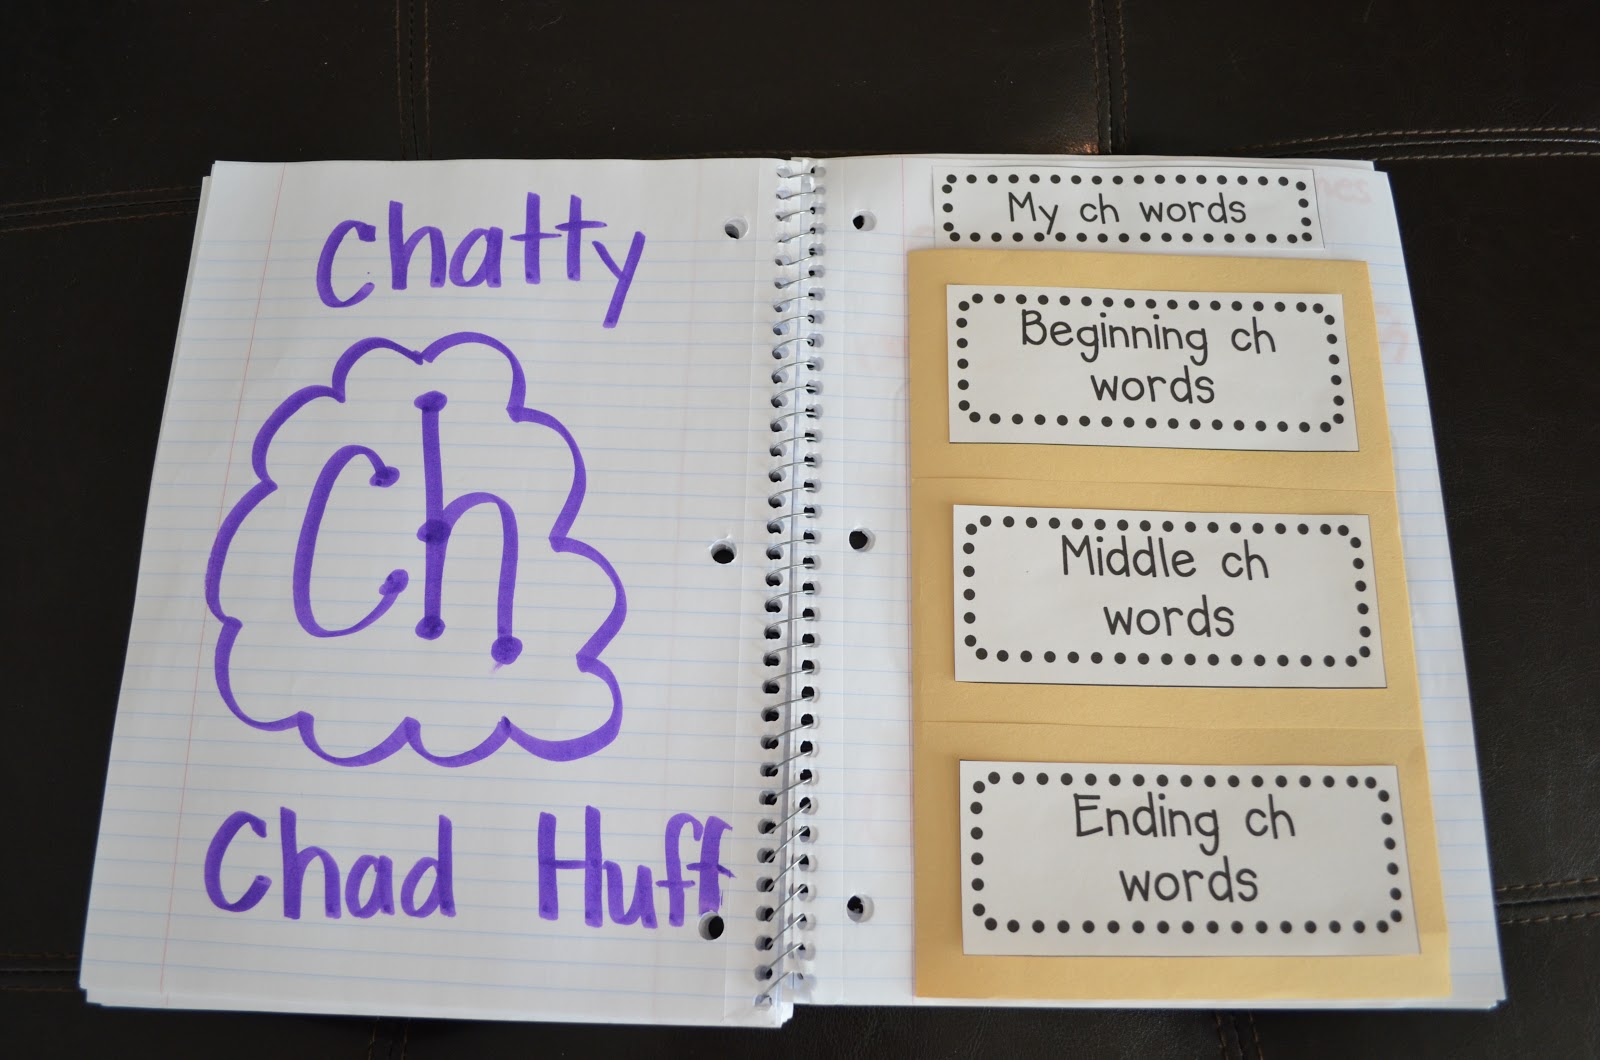 chatty
ch
Chad Huff
My ch words
Beginning ch
words
Middle ch
words
Ending ch
words